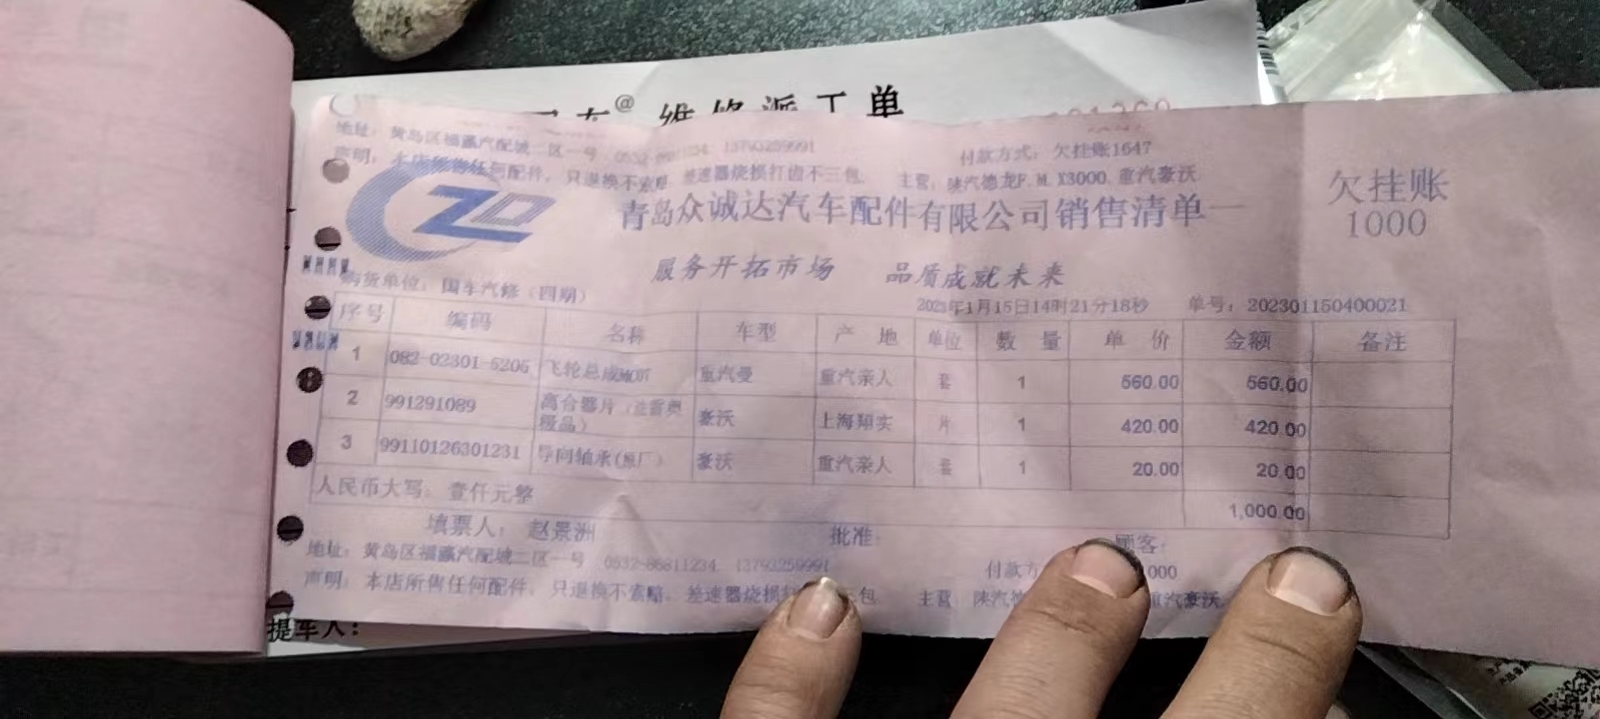 维修派工单
地址：黄岛区福瀛汽配城二区一号 13793259991 付款方式：欠挂账1647
声明：本店所售任何配件，只退换不索赔 差速器烧损打齿不三包 主营：陕汽德龙F.M.X3000.重汽豪沃
欠挂账
1000
ZD
青岛众诚达汽车配件有限公司销售清单一
服务开拓市场 品质成就未来
购货单位：国车汽修（四期） 2023年1月15日14时21分18秒 单号：202301150400021
序号 编码 名称 车型 产地 单位 数量 单价 金额 备注
1 082-02301-5205 飞轮总成 重汽曼 重汽亲人 套 1 560.00 560.00
2 991291089 离合器片 极品） 豪沃 上海翔实 片 1 420.00 420.00
3 99110126301231 导向轴承(原厂) 豪沃 重汽亲人 套 1 20.00 20.00
人民币大写：壹仟元整 1,000.00
填票人：赵景洲 批准： 顾客：
地址：黄岛区福瀛汽配城二区一号 0532-86811234 13793259991 付款方 000
声明：本店所售任何配件，只退换不索赔，差速器烧损 包 主营：陕汽德 重汽豪沃.
提车人：